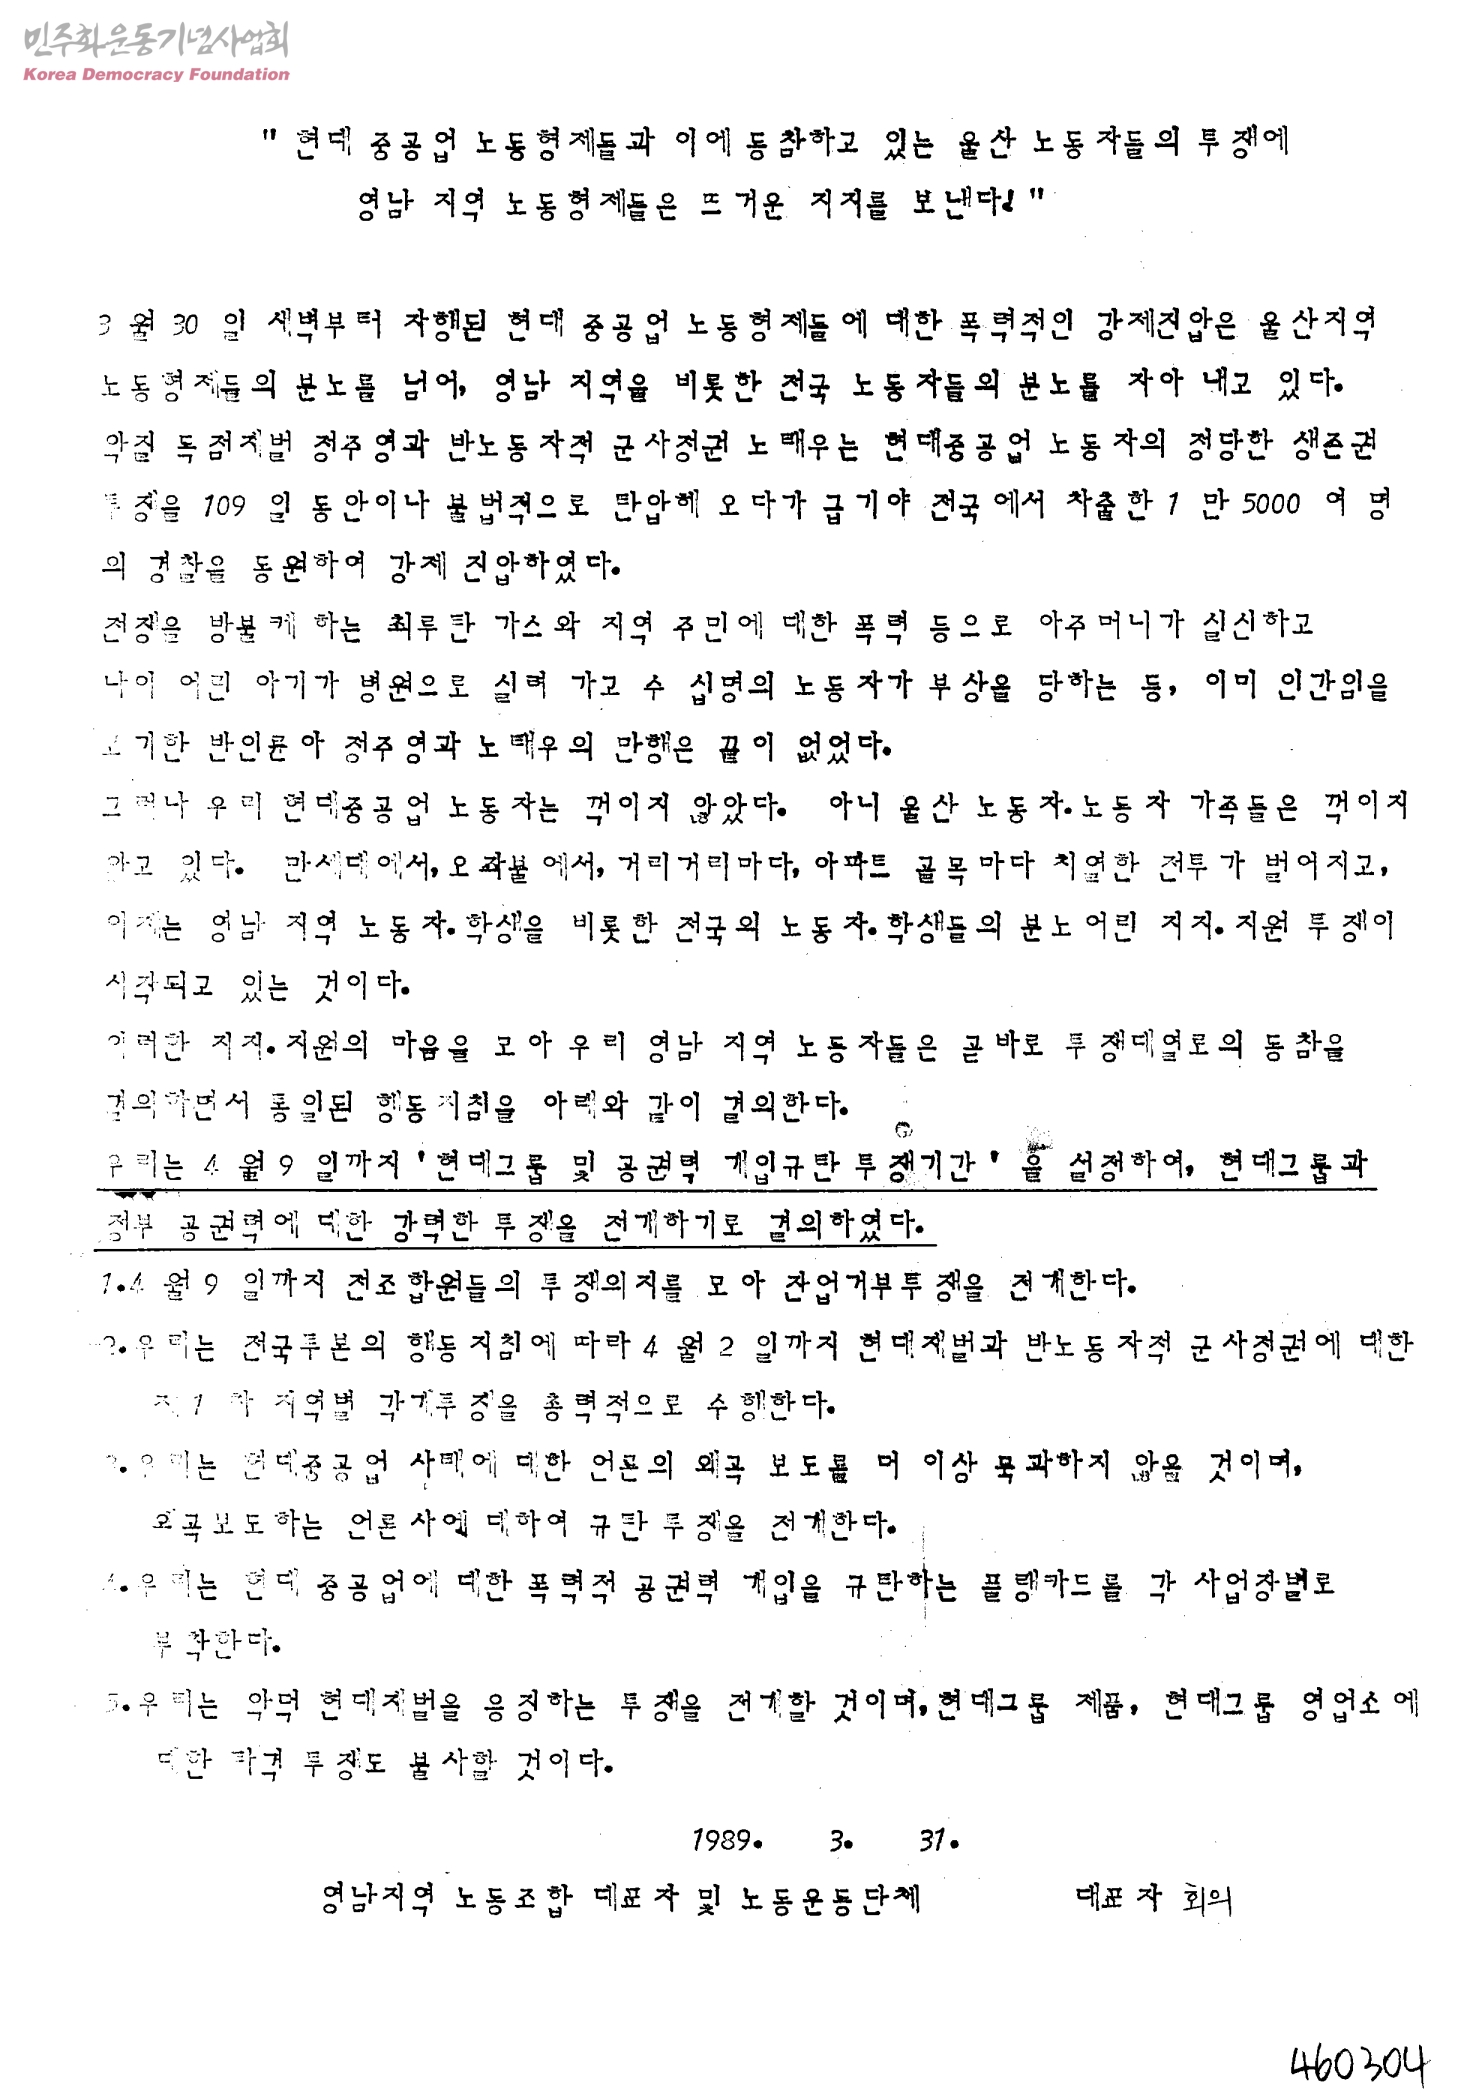 민주화운동기념사업회
Korea Democracy Foundation
" 현대 중공업 노동형제들과 이에 동참하고 있는 울산 노동자들의 투쟁에
영남 지역 노동형제들은 뜨거운 지지를 보낸다! "
3 월 30 일 새벽부터 자행된 현대 중공업 노동형제들에 대한 폭력적인 강제진압은 울산지역
노동형제들의 분노를 넘어, 영남 지역을 비롯한 전국 노동자들의 분노를 자아 내고 있다.
악질 독점재벌 정주영과 반노동자적 군사정권 노태우는 현대중공업 노동자의 정당한 생존권
투쟁을 109 일 동안이나 불법적으로 탄압해 오다가 급기야 전국에서 차출한 1 만 5000 여 명
의 경찰을 동원하여 강제 진압하였다.
전쟁을 방불케 하는 최루탄 가스와 지역 주민에 대한 폭력 등으로 아주머니가 실신하고
나이 어린 아기가 병원으로 실려 가고 수 십명의 노동자가 부상을 당하는 등, 이미 인간임을
포기한 반인륜아 정주영과 노태우의 만행은 끝이 없었다.
그러나 우리 현대중공업 노동자는 꺽이지 않았다. 아니 울산 노동자.노동자 가족들은 꺽이지
않고 있다. 만세대에서,오좌불에서,거리거리마다,아파트 골목마다 치열한 전투가 벌어지고,
이제는 영남 지역 노동자.학생을 비롯한 전국의 노동자.학생들의 분노어린 지지.지원 투쟁이
시작되고 있는 것이다.
이러한 지지.지원의 마음을 모아 우리 영남 지역 노동자들은 곧바로 투쟁대열로의 동참을
결의하면서 통일된 행동지침을 아래와 같이 결의한다.
우리는 4 월 9 일까지 '현대그룹 및 공권력 개입규탄 투쟁기간' 을 설정하여, 현대그룹과
정부 공권력에 대한 강력한 투쟁을 전개하기로 결의하였다.
1.4 월 9 일까지 전조합원들의 투쟁의지를 모아 잔업거부투쟁을 전개한다.
2.우리는 전국투본의 행동지침에 따라 4 월 2 일까지 현대재벌과 반노동자적 군사정권에 대한
제 1 차 지역별 각개투쟁을 총력적으로 수행한다.
3.우리는 현대중공업 사태에 대한 언론의 왜곡 보도를 더 이상 묵과하지 않을 것이며,
왜곡보도하는 언론사에 대하여 규탄 투쟁을 전개한다.
4.우리는 현대 중공업에 대한 폭력적 공권력 개입을 규탄하는 플랭카드를 각 사업장별로
부착한다.
5.우리는 악덕 현대재벌을 응징하는 투쟁을 전개할 것이며,현대그룹 제품, 현대그룹 영업소에
대한 타격 투쟁도 불사할 것이다.
1989. 3. 31.
영남지역 노동조합 대표자 및 노동운동단체 대표자 회의
460304